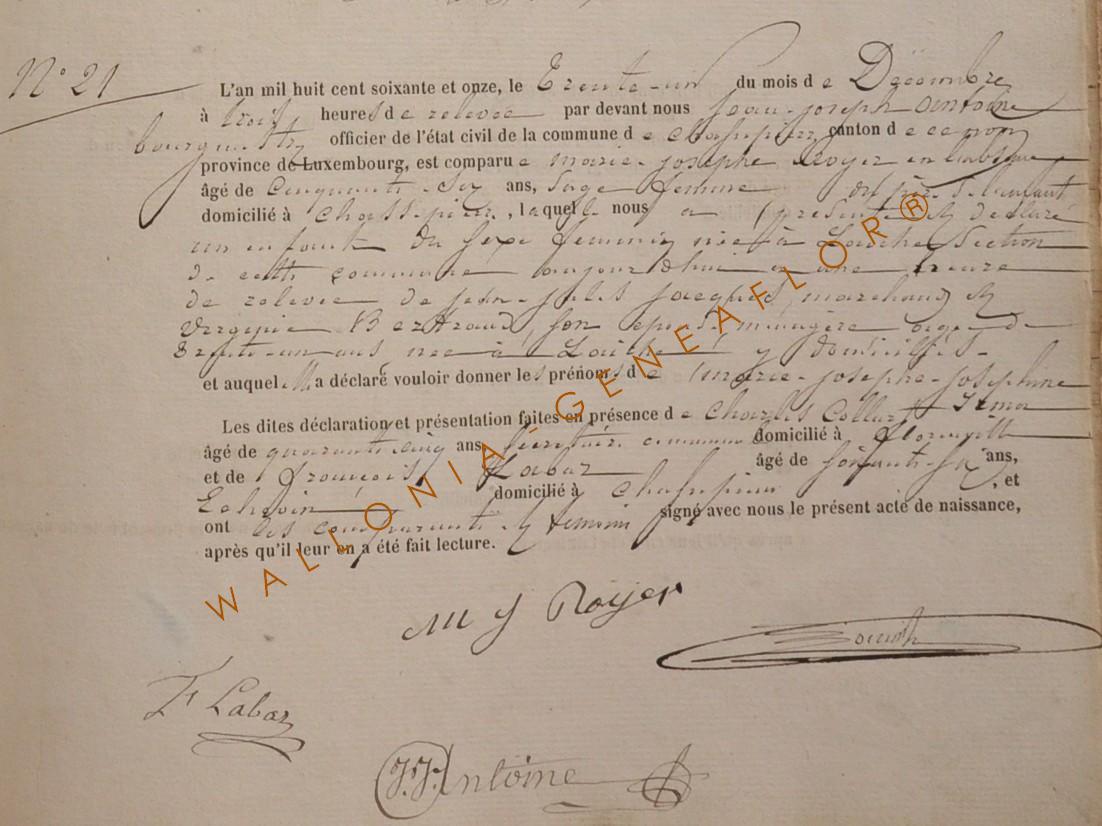 N° 21
L'an mil huit cent soixante et onze, le Trente-un du mois de Décembre
à trois heures de relevée par devant nous Jean-Joseph Antoine
bourgmestre officier de l'état civil de la commune de Chassepierre, canton de ce nom
province de Luxembourg, est comparue Marie-Josephe Royer
âgé de Cinquante-six ans, Sage femme
domicilié à Chassepierre, laquelle nous a présenté et déclaré
un enfant du sexe féminin née à Laiche Section
de cette commune aujourd'hui à une heure
de relevée de Jean-Jules Jacques, marchand et
Virginie Bertrand, son épouse ménagère âgés de
trente-un ans née à Laiche y domiciliés-
et auquel elle a déclaré vouloir donner les prénoms de Marie-Josephe-Josephine
Irma
Les dites déclaration et présentation faites en présence de Charles Collart
âgé de quarante cinq ans, Secrétaire communal domicilié à Florenville
et de François Labar âgé de soixante-six ans,
Echevin domicilié à Chassepierre, et
ont les comparante et témoins signé avec nous le présent acte de naissance,
après qu'il leur en a été fait lecture.
M J Royer
F Labar
J.J. Antoine
WALLONIA-GENEAFLOR®